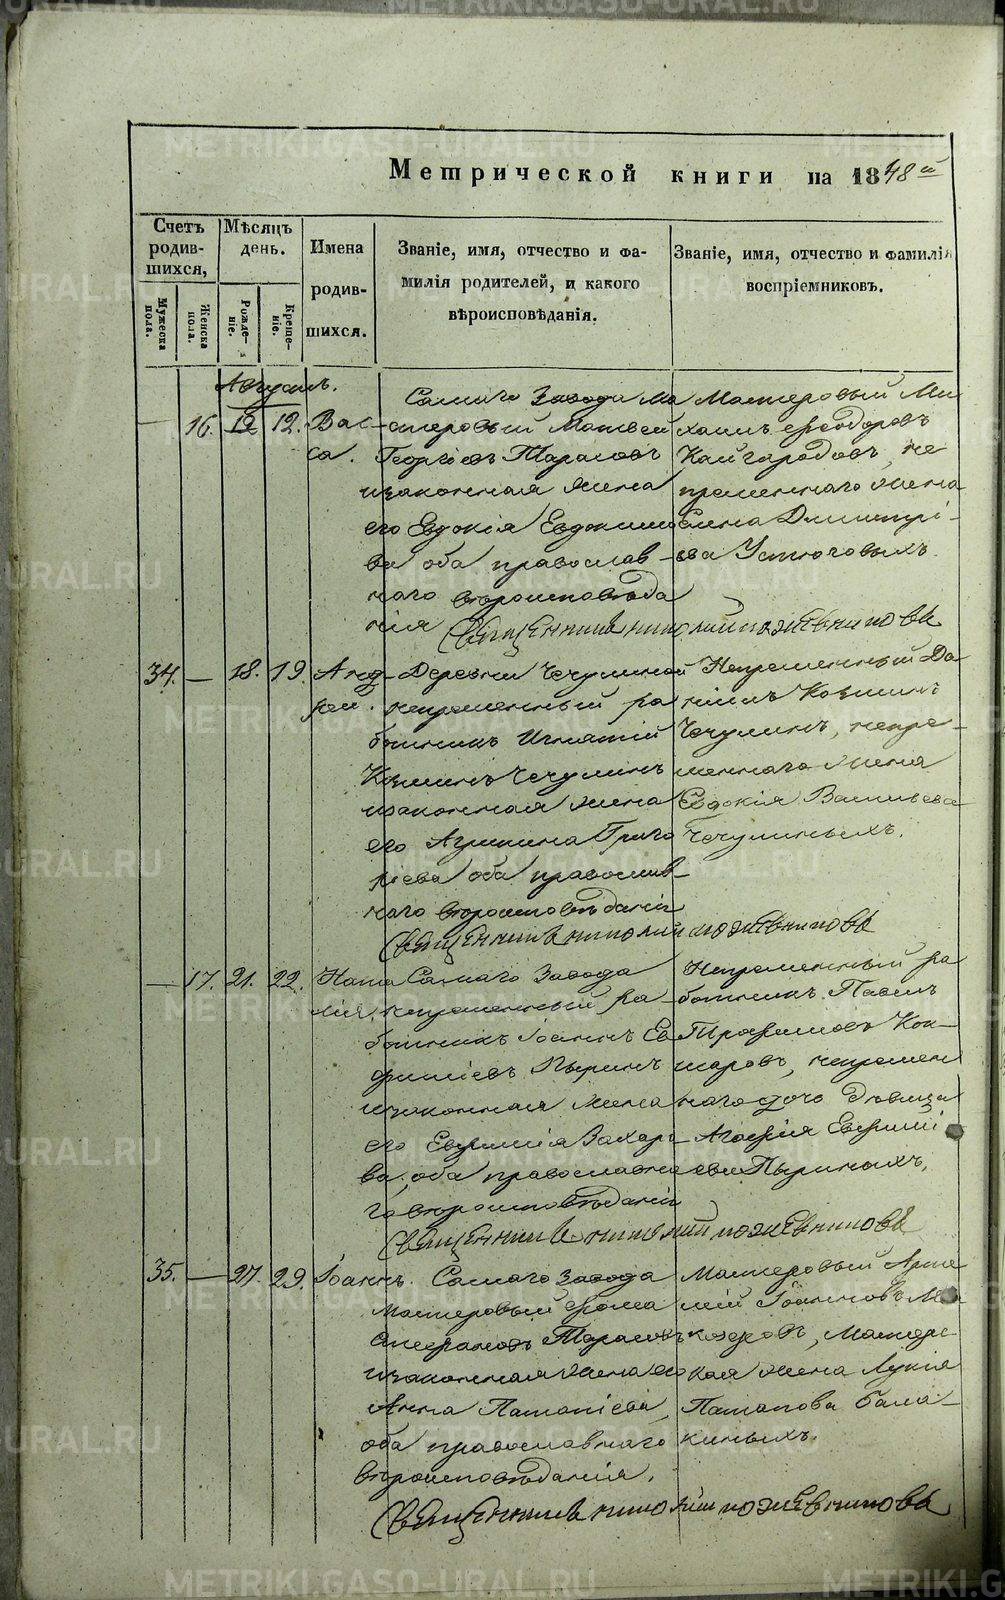 METRIKI.GASO-URAL.RU
Метрической книги на 1848й
Счетъ родив-шихся,
Мужеска пола.
Женска пола.
Мѣсяцъ день.
Рожде-ніе.
Креще-ніе.
Имена
родив-
шихся.
Званіе, имя, отчество и фа-
милія родителей, и какого
вѣроисповѣданія.
Званіе, имя, отчество и фамилія
воспріемниковъ.
Августъ.
— 16. 12 12. Вас-
са.
Самаго Завода Ма
стеровый Матвей
Георгіевъ Тарасовъ
изаконная жена
его Евдокія Евдокимо
ва оба православ-
наго вероисповѣда
нія
Мастеровый Ми
хаилъ Ѳеодоровъ
Кайгородовъ, не
пременнаго жена
Елена Димитрі-
ева Устюговыхъ.
Священникъ Николай Кожевниковъ
34. — 18. 19. Анд-
рей.
Деревни Чечулиной
непременный ра
ботникъ Игнатій
Козминъ Чечулинъ
изаконная жена
его Агрипина Григо
ріева оба православ-
наго вероисповѣданія
Непременный Да-
ніилъ Козминъ
Чечулинъ, непре-
меннаго жена
Евдокія Васильева
Чечулиныхъ.
Священникъ Николай Кожевниковъ
— 17. 21. 22. Ната
лія.
Самаго Завода
непременный ра-
ботникъ Іоаннъ Ев
фиміевъ Пыринъ
изаконная жена
его Евфимія Захаро
ва, оба православна
го вероисповѣданія
Непременный ра
ботникъ Павелъ
Трофимовъ Ком-
шаровъ, непремен
наго дочь Дѣвица
Агафія Евфимі
ева Пыриныхъ,
Священникъ Николай Кожевниковъ
35. — 27. 29. Іоаннъ.
Самаго Завода
мастеровый Ѳома
Стефановъ Тарасовъ
изаконная жена его
Анна Патапіева,
оба православнаго
вѣроисповѣданія.
Мастеровый
Іоанновъ
Мастерс
кая жена Лукія
Патапова Бала-
киныхъ.
Священникъ Николай Кожевниковъ